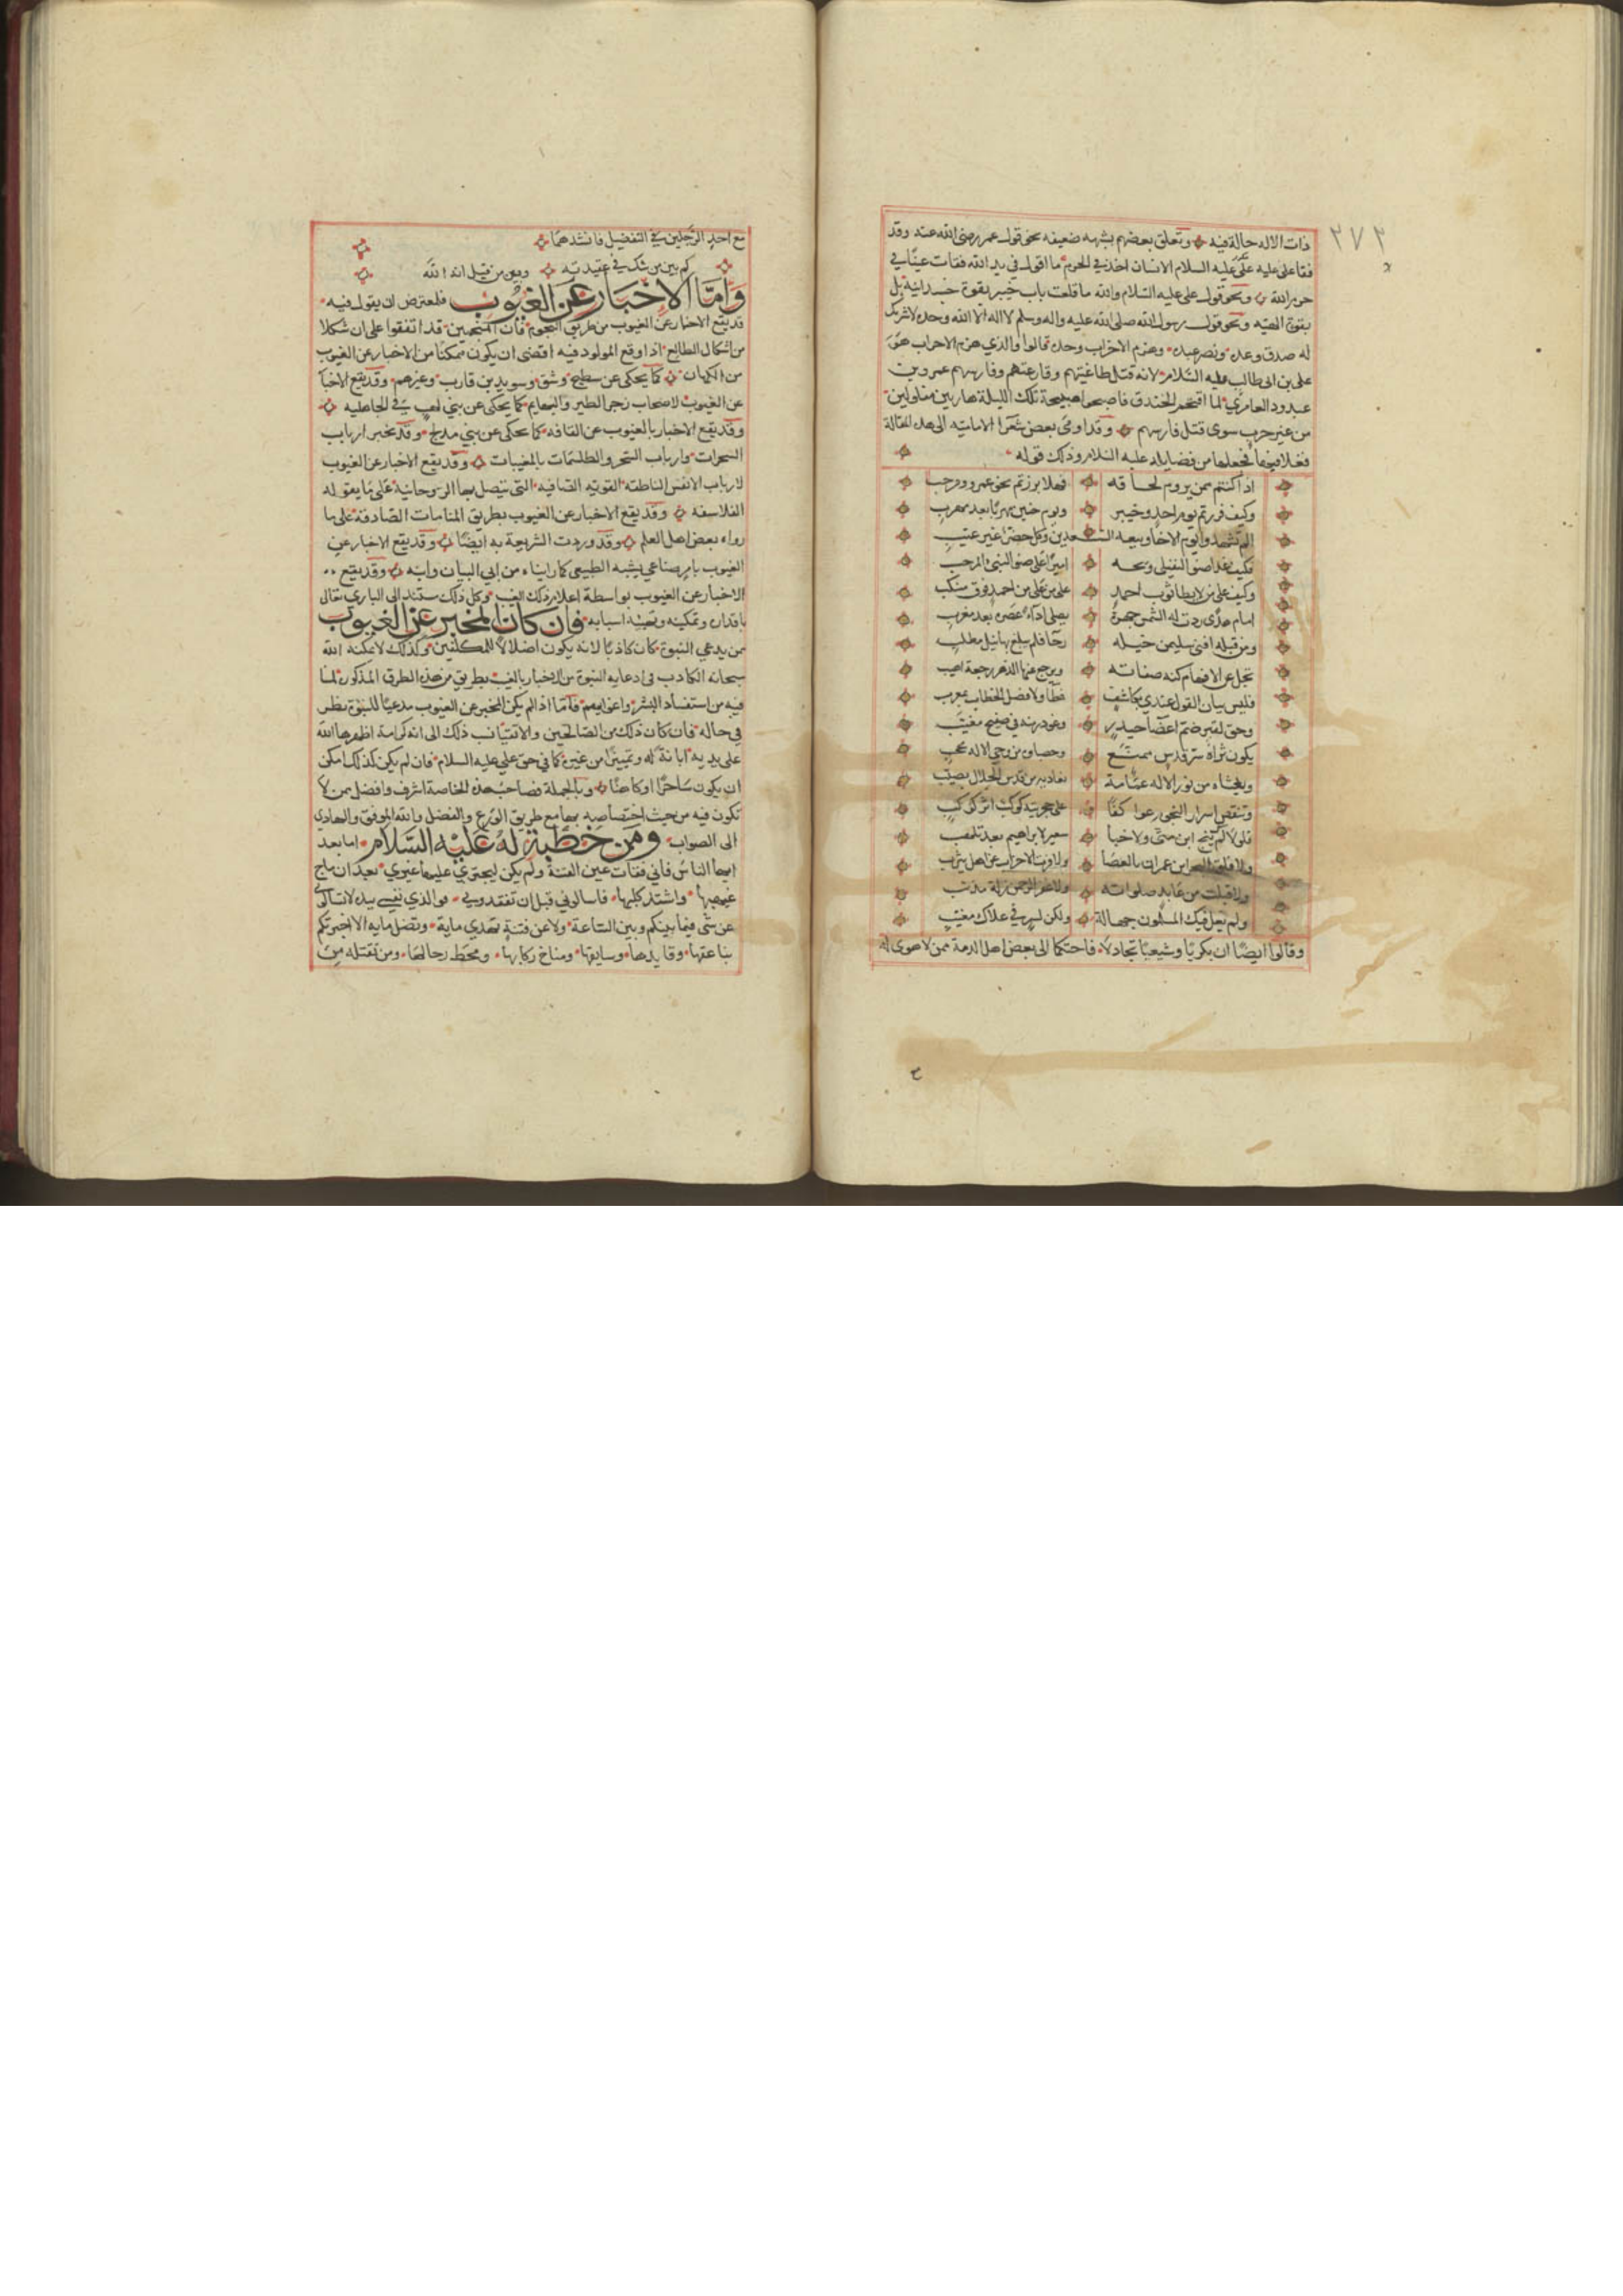 ٢٧٢
ذات الاله حالة فيه وتعلق بعضهم بشبهه ضعيفه نحو قول عمر رضي الله عنه وقد
فقأ علي عليه السلام الانسان احد في الحرم ما اقول في يد الله فقات عينا في
حرم الله ونحو قول علي عليه السلام والله ما قلعت باب خيبر بقوة جسدانية بل
بقوة الهيه ونحو قول رسول الله صلى الله عليه واله وسلم لا اله الا الله وحده لا شريك
له صدق وعده ونصر عبده وهزم الاحزاب وحده قالوا والذي هزم الاحزاب هو
علي بن ابي طالب عليه السلام لانه قتل طاغيتهم وقارعتهم وفارسهم عمرو بن
عبد ود العامري لما اقتحم الخندق فاصبحوا صبيحة تلك الليلة هاربين مفلولين
من غير حرب سوى قتل فارسهم وقد اومى بعض شعرا الاماميه الى هذه المقالة
فجعلها من فضايله عليه السلام وذلك قوله
اذا كنتم ممن يروم لحاقه فهلا برزتم نحو عمرو ومرحب
وكيف فررتم يوم احد وخيبر ويوم حنين مهربا بعد مهرب
الم تشهدوا يوم الاخا وبيعه الغديرين وكل حضر غير غيب
فكيف غدا صنو النفيلي ويحه اميرا على صنو النبي المرجب
وكيف علا من لا يطا ثوب احمد على من علا من احمد فوق منكب
امام هدى ردت له الشمس جهرة يصلي اداء عصره بعد مغرب
ومن قبله افنى سليمن خيله رجا فلم يبلغ بها نيل مطلب
يجل عن الافهام كنه صفاته ويرجع عنها الذهن رجعة اخيب
فليس بيان القول عندي بكاشف غطا ولا فضل الخطاب بمعرب
وحق لقبر ضم اعضا حيدر وغودر منه في صفيح مغيب
يكون ثراه سر قدس ممنع وحصباه من وحي الاله محجب
ويغشاه من نور الاله غمامة تغاديه من قدس الجلال بصيب
وتنقض اسرار النجوم عواكفا على حجرتيه كوكب اثر كوكب
فلولاك لم ينج ابن متى ولا خبا سعير لابراهيم بعد تلهب
ولا فلق البحر ابن عمران بالعصا ولا فرت الاحزاب عن اهل يثرب
ولا قبلت من عابد صلواته ولا غفر الرحمن زلة مذنب
ولم يغل فيك المسلمون جهالة ولكن لسر في علاك مغيب
وقالوا ايضا ان بكريا وشيعيا تجادلا فاحتكما الى بعض اهل الذمة ممن لا هوى له
مع احد الرجلين في التفضيل فانشدهما
كم بين من شك في عقيدته وبين من قيل انه الله
واما الاخبار عن الغيوب فلمعترض ان يقول فيه
قد يقع الاخبار عن الغيوب من طريق النجوم فان المنجمين قد اتفقوا على ان شكلا
من اشكال الطالع اذا وقع لمولود فيه اقتضى ان يكون متمكنا من الاخبار عن الغيوب
من الكهان كما يحكى عن سطيح وشق وسويد بن قارب وغيرهم وقد يقع الاخبا
عن الغيوب لاصحاب زجر الطير والبهايم كما يحكى عن بني لهب في الجاهليه
وقد يقع الاخبار بالغيوب عن القافه كما يحكى عن بني مدلج وقد يخبر ارباب
النيرنجات وارباب السحر والطلسمات بالمغيبات وقد يقع الاخبار عن الغيوب
لارباب الانفس الناطقه القويه الصافيه التي تتصل بها الروحانية على ما يقوله
الفلاسفه وقد يقع الاخبار عن الغيوب بطريق المنامات الصادقة على ما
رواه بعض اهل العلم وقد وردت الشريعة به ايضا وقد يقع الاخبار عن
الغيوب بامر صناعي يشبه الطبيعي كما رايناه من ابي البيان وابنه وقد يقع
الاخبار عن الغيوب بواسطة اعلام ذلك الغيب وكل ذلك مستند الى الباري تعالى
باقداره وتمكينه وتهيئه اسبابه فان كان المخبر عن الغيوب
ممن يدعي النبوة كان كاذبا لانه يكون اضلالا للمكلفين وكذلك لا يمكنه الله
سبحانه الكاذب في ادعايه النبوة من الاخبار بالغيب بطريق من هذه الطرق المذكوره لما
فيه من استفساد البشر واغوايهم فاما اذا لم يكن المخبر عن الغيوب مدعيا للنبوة نظر
في حاله فان كان ذلك من الصالحين والاتقيا نسب ذلك الى انه كرامة اظهرها الله
على يديه ابانة له وتمييزا من غيره كما في حق علي عليه السلام فان لم يكن كذلك امكن
ان يكون ساحرا او كاهنا وبالجملة فصاحب هذه الخاصة اشرف وافضل ممن لا
تكون فيه من حيث اختصاصه بها مع طريق الورع والفضل والله الموفق والهادي
الى الصواب ومن خطبة له عليه السلام اما بعد
ايها الناس فاني فقات عين الفتنة ولم يكن ليجترئ عليها غيري بعد ان ماج
غيهبها واشتد كلبها فاسالوني قبل ان تفقدوني فوالذي نفسي بيده لا تسالونى
عن شي فيما بينكم وبين الساعة ولا عن فتنة تهدي ماية وتضل ماية الا انبيتكم
بناعقها وقايدها وسايقها ومناخ ركابها ومحط رحالها ومن يقتل من